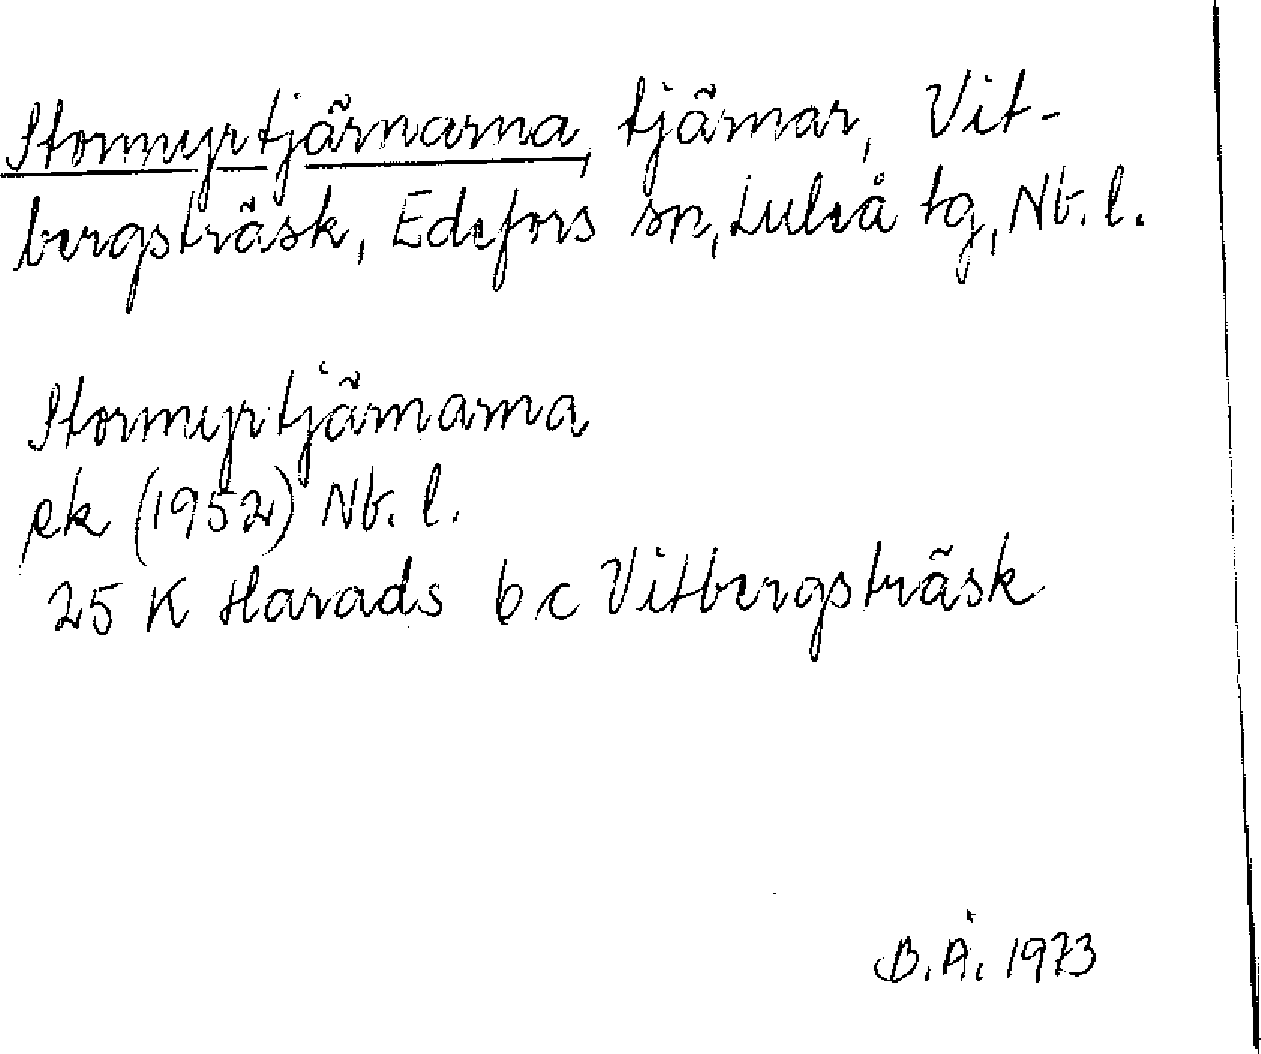 Stormyrtjärnarna, tjärnar, Vit-
bergsträsk, Edefors sn, Luleå tg, Nb. l.
Stormyrtjärnarna
ek (1952) Nb. l.
25 K Harads 6 c Vitbergsträsk
B. Å. 1973